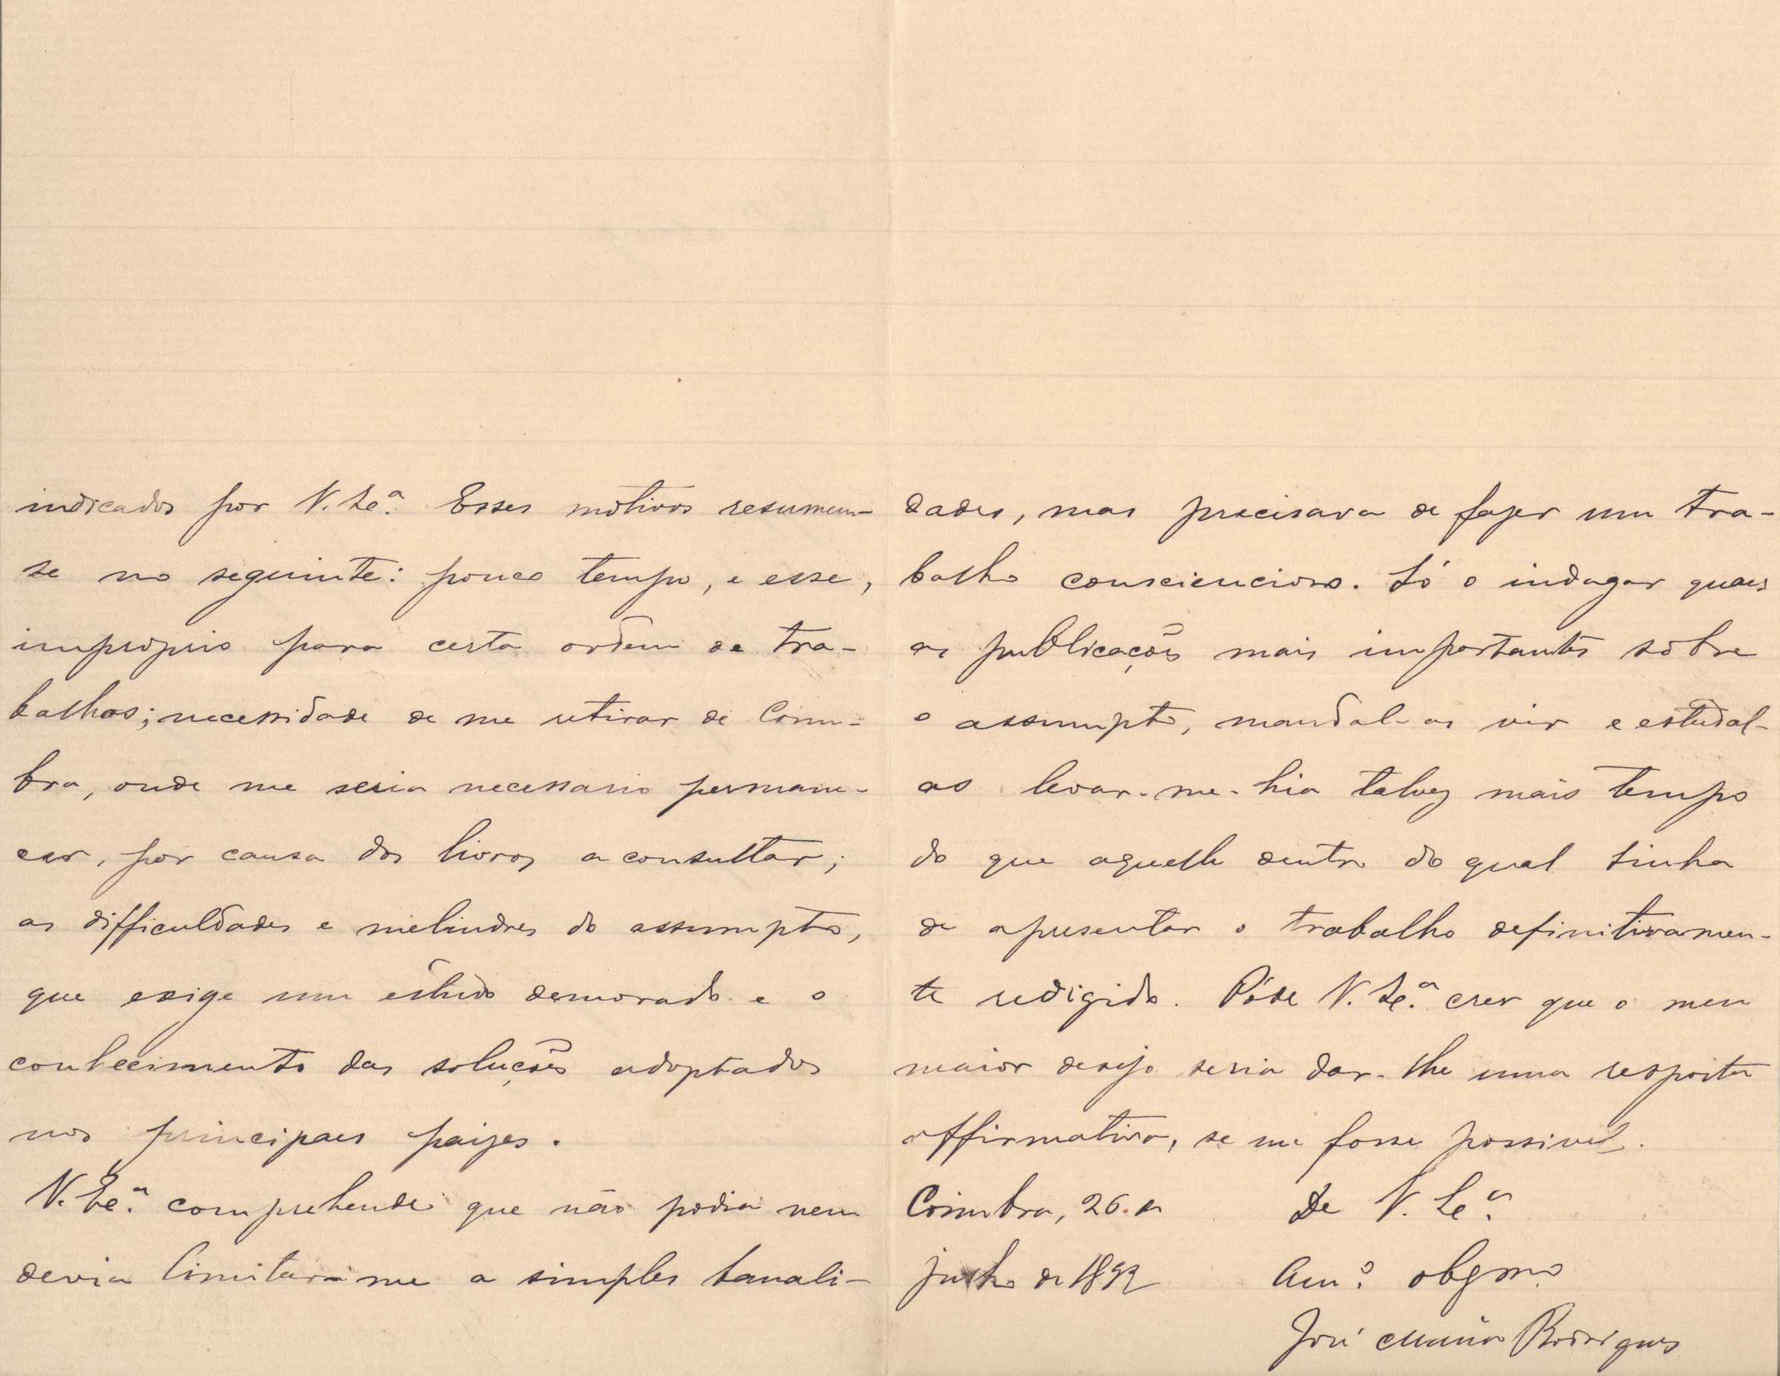 indicados por V. Ex.ª Esses motivos resumem-
se no seguinte: pouco tempo, e esse,
improprio para certa ordem de tra-
balhos; necessidade de me retirar de Coim-
bra, onde me seria necessario permane-
cer, por causa dos livros a consultar;
as difficuldades e melindres do assumpto,
que exige um estudo demorado e o
conhecimento das soluções adoptadas
nos principaes paizes.
V. Ex.ª comprehende que não podia nem
devia limitar-me a simples banali-
dades, mas precisava de fazer um tra-
balho consciencioso. Só o indagar quaes
as publicações mais importantes sobre
o assumpto, mandal-as vir e estudal-
as levar-me-hia talvez mais tempo
do que aquelle dentro do qual tinha
de apresentar o trabalho definitivamen-
te redigido. Póde V. Ex.ª crer que o meu
maior desejo seria dar-lhe uma resposta
affirmativa, se me fosse possivel.
Coimbra, 26 de
julho de 1892
De V. Ex.ª
Am.º obgmo.
José Maria Rodrigues